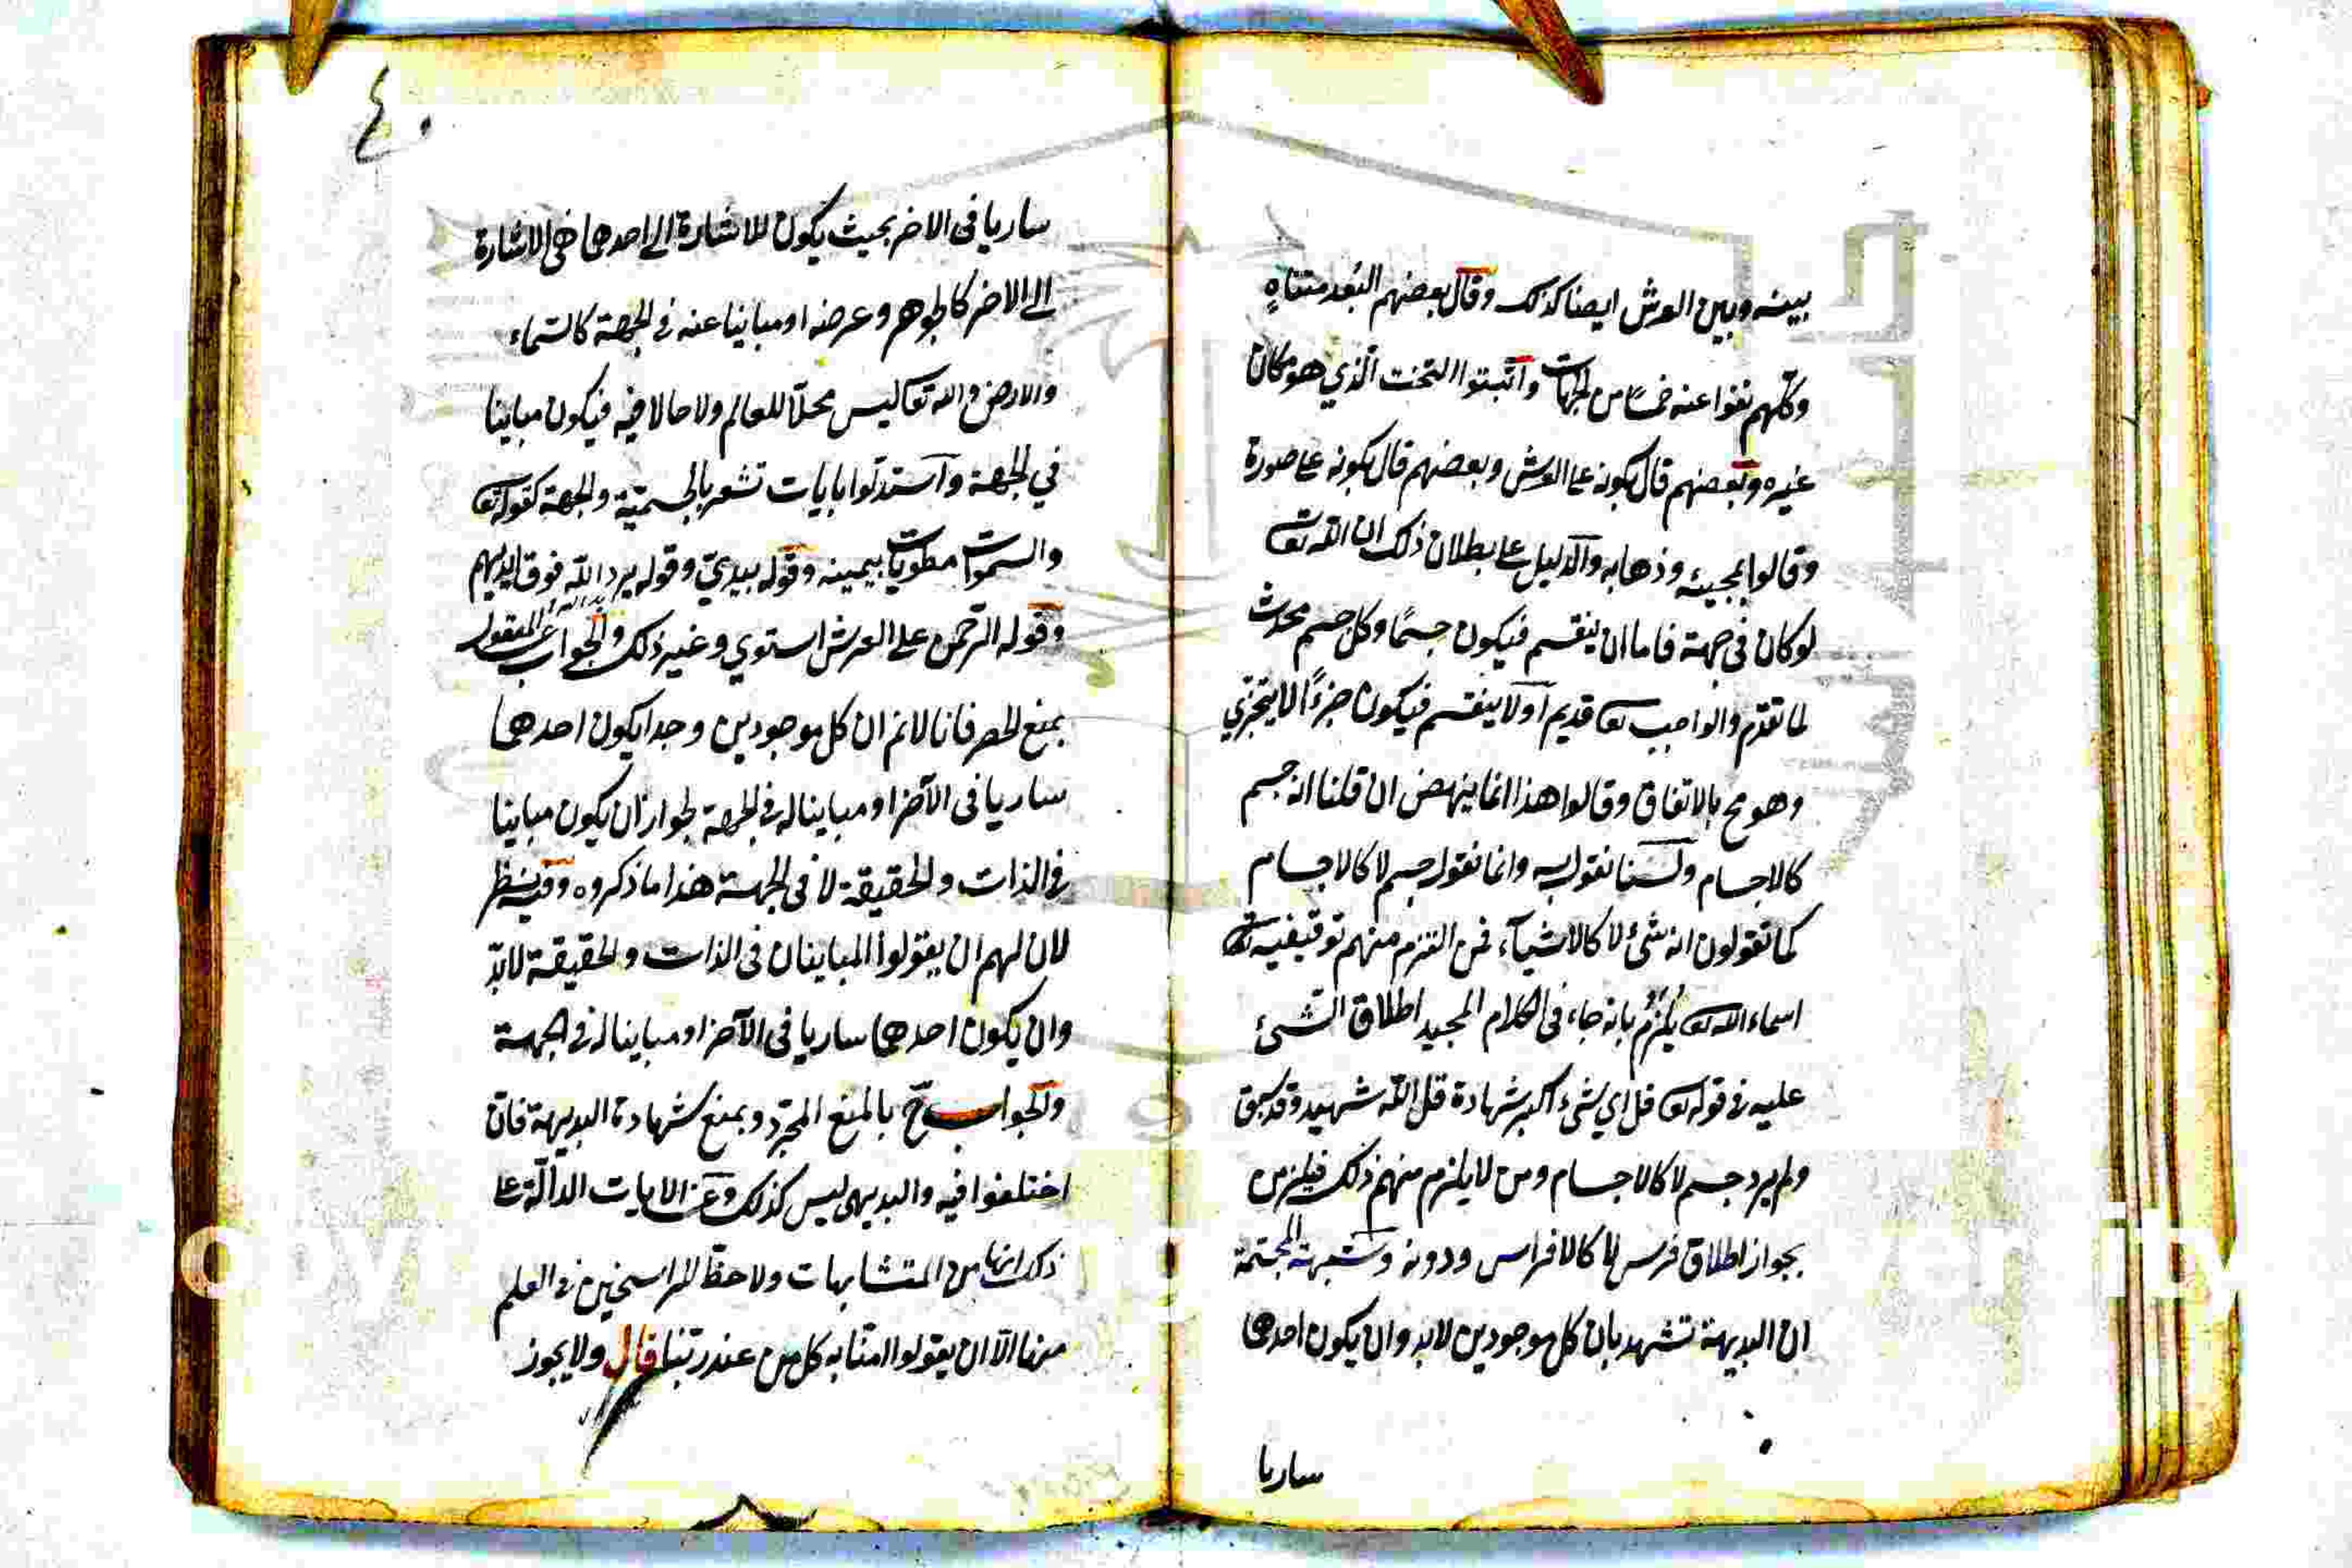 بينه وبين العرش ايضا كذلك وقال بعضهم البُعد متناهٍ
وكلّهم نفوا عنه خمسًا من الجهات واثبتوا التحت الّذي هو مكان
غيره وبعضهم قال بكونه على العرش وبعضهم قال بكونه على صورة
وقالوا بمجيئه وذهابه والدليل على بطلان ذلك ان اللّه تعا
لو كان فى جهة فاما ان ينقسم فيكون جسمًا وكل جسم محدث
لما تقدّم والواجب تعا قديم اَو لا ينقسم فيكون جزءًا لا يتجزي
وهو مح بالاتفاق وقالوا هذا انما ينهض ان قلنا انه جسم
كالاجسام ولسنا نقول به وانما نقول جسم لا كالاجسام
كما تقولون انه شئ لا كالاشيآء فمن التزم منهم توقيفية
اسماء الله تعا يُلزَمُ بانه جاء فى الكلام المجيد اطلاق الشئ
عليه في قوله تعا قل اي شىء اكبر شهادة قل اللّه شهيد وقد سبق
ولم يرد جسم لا كالاجسام ومن لا يلتزم منهم ذلك فيلزمن
بجواز اطلاق فرس لا كالافراس ودونه وشبهة المجسّمة
ان البديهة تشهد بان كل موجودين لابد وان يكون احدها
ساريا
٤٠
ساريا فى الاخر بحيث يكون للاشارة الى احدها هى الاشارة
الى الاخر كالجوهر وعرضه او مباينا عنه في الجهة كالسّماء
والارض والله تعا ليس محلّا للعالم ولا حالا فيه فيكون مباينا
في الجهة واستدلّوا بايات تشعر بالجسميّة والجهة كقوله تعا
والسموات مطويات بيمينه وقوله بيديّ وقوله يد اللّه فوق ايديهم
وقوله الرّحمن على العرش استوي وغير ذلك والجواب عن المنقول
بمنع الحصر فانا لانم ان كل موجودين وجدا يكون احدهما
ساريا فى الآخر او مباينا له في الجهة لجواز ان يكون مباينا
في الذات والحقيقة لا فى الجهة هذا ما ذكروه وفيه نظر
لان لهم ان يقولوا المباينان فى الذات والحقيقة لابدّ
وان يكون احدهما ساريا فى الآخر او مباينا له في الجهة
والجواب ح بالمنع المجرّد وبمنع شهادة البديهة فان
اختلفوا فيه والبديهى ليس كذلك وعن الايات الدالّة على
ذلك انها من المتشابهات ولا حظّ للراسخين في العلم
منها الّا ان يقولوا امنّا به كل من عند ربّنا قال ولا يجوز